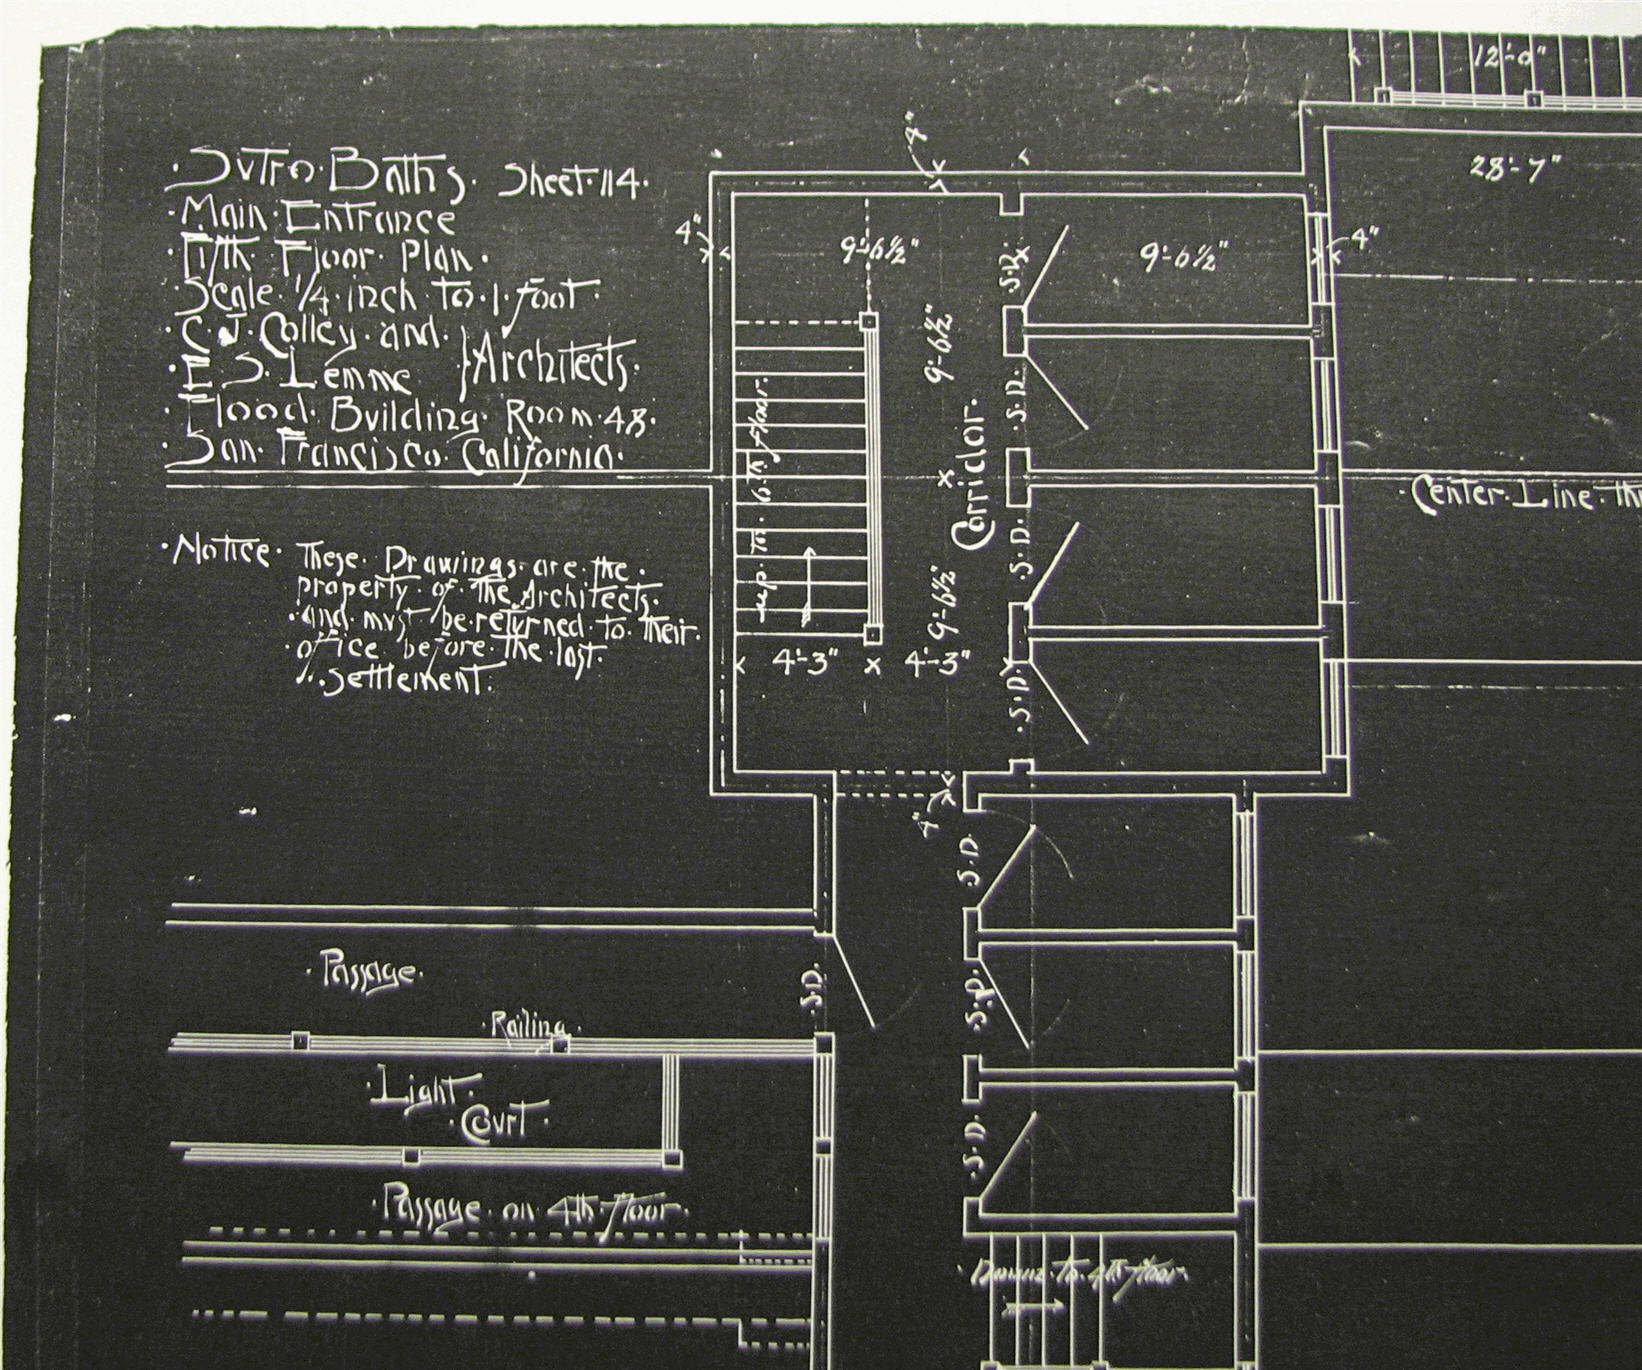 ·Sutro·Baths· Sheet·114·
·Main·Entrance
·Fifth·Floor·Plan·
·Scale·1/4·inch·to·1·foot·
·C·J·Colley·and·
·E·S·Lemme
}Architects·
·Flood·Building·Room·48·
·San·Francisco·California·
·Notice· These·Drawings·are·the·
property·of·the·Architects·
·and·must·be·returned·to·their·
·office·before·the·last·
·settlement·
12'-0"
28'-7"
4"
4"
9'-6½"
9'-6½"
4"
·S·D·
9'-6½"
·S·D·
·up·to·6th·floor·
Corridor·
·Center·Line·
·S·D·
9'-6½"
4'-3"
4'-3"
·S·D·
4"
·S·D·
·Passage·
·S·D·
·S·D·
·Railing·
·Light·
·Court·
·S·D·
·Passage·on·4th·floor·
·Down·to·4th·floor